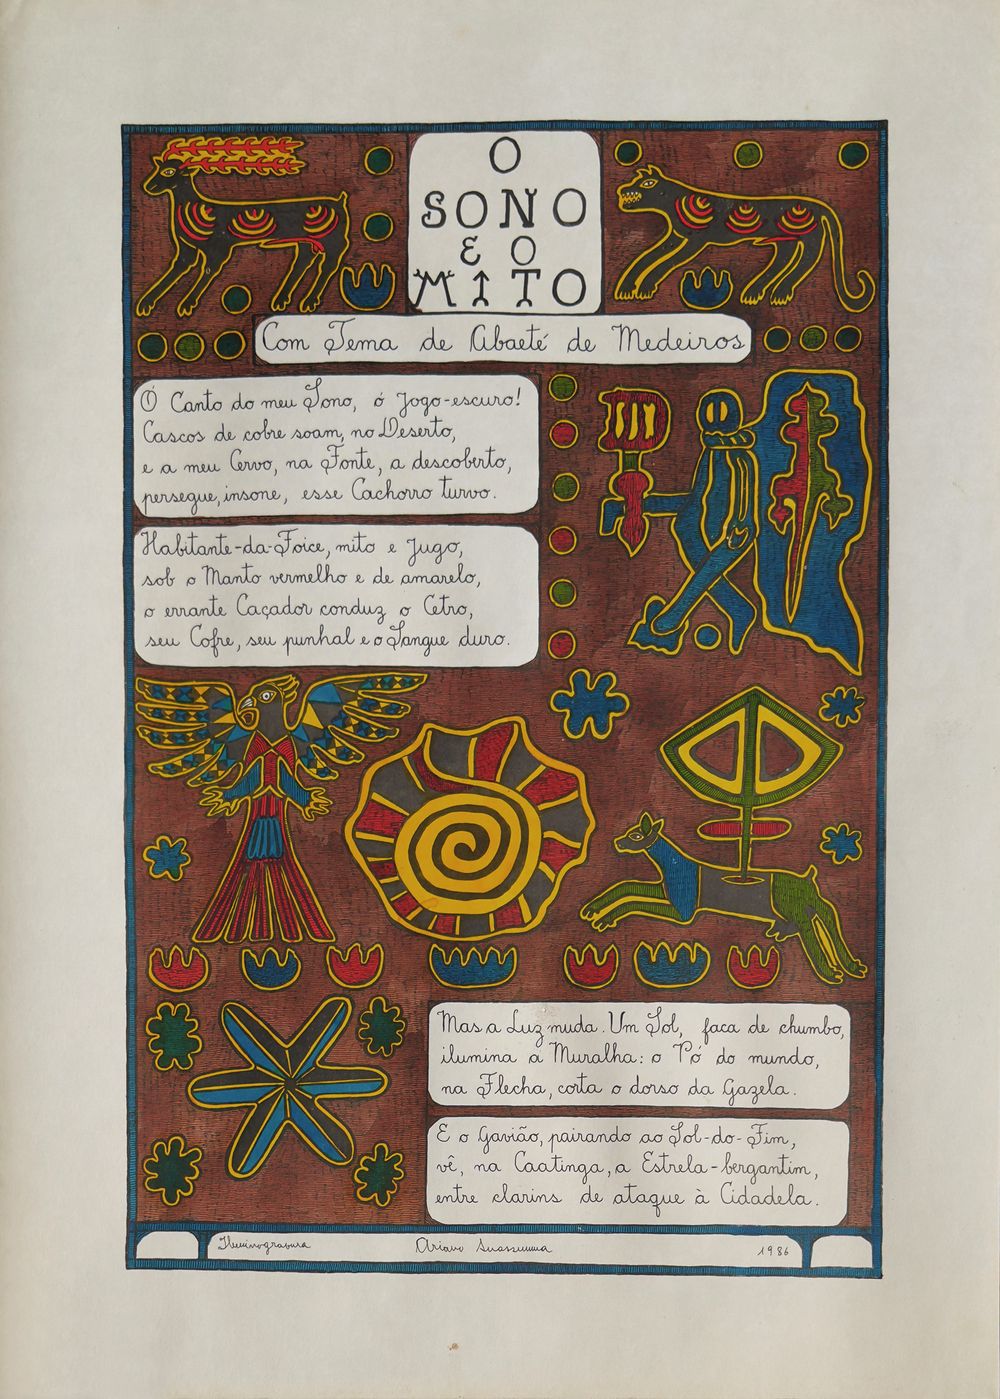 O
SONO
E O
MITO
Com Tema de Abaeté de Medeiros
Ó Canto do meu Sono, ó Jogo-escuro!
Cascos de cobre soam, no Deserto,
e a meu Cervo, na Fonte, a descoberto,
persegue, insone, esse Cachorro turvo.
Habitante-da-Foice, mito e Jugo,
sob o Manto vermelho e de amarelo,
o errante Caçador conduz o Cetro,
seu Cofre, seu punhal e o Sangue duro.
Mas a Luz muda. Um Sol, faca de chumbo,
ilumina a Muralha: o Pó do mundo,
na Flecha, corta o dorso da Gazela.
E o Gavião, pairando ao Sol-do-Fim,
vê, na Caatinga, a Estrela-bergantim,
entre clarins de ataque à Cidadela.
Iluminogravura Ariano Suassuna 1986